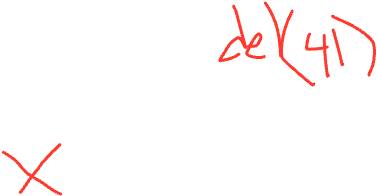 del(41)
X